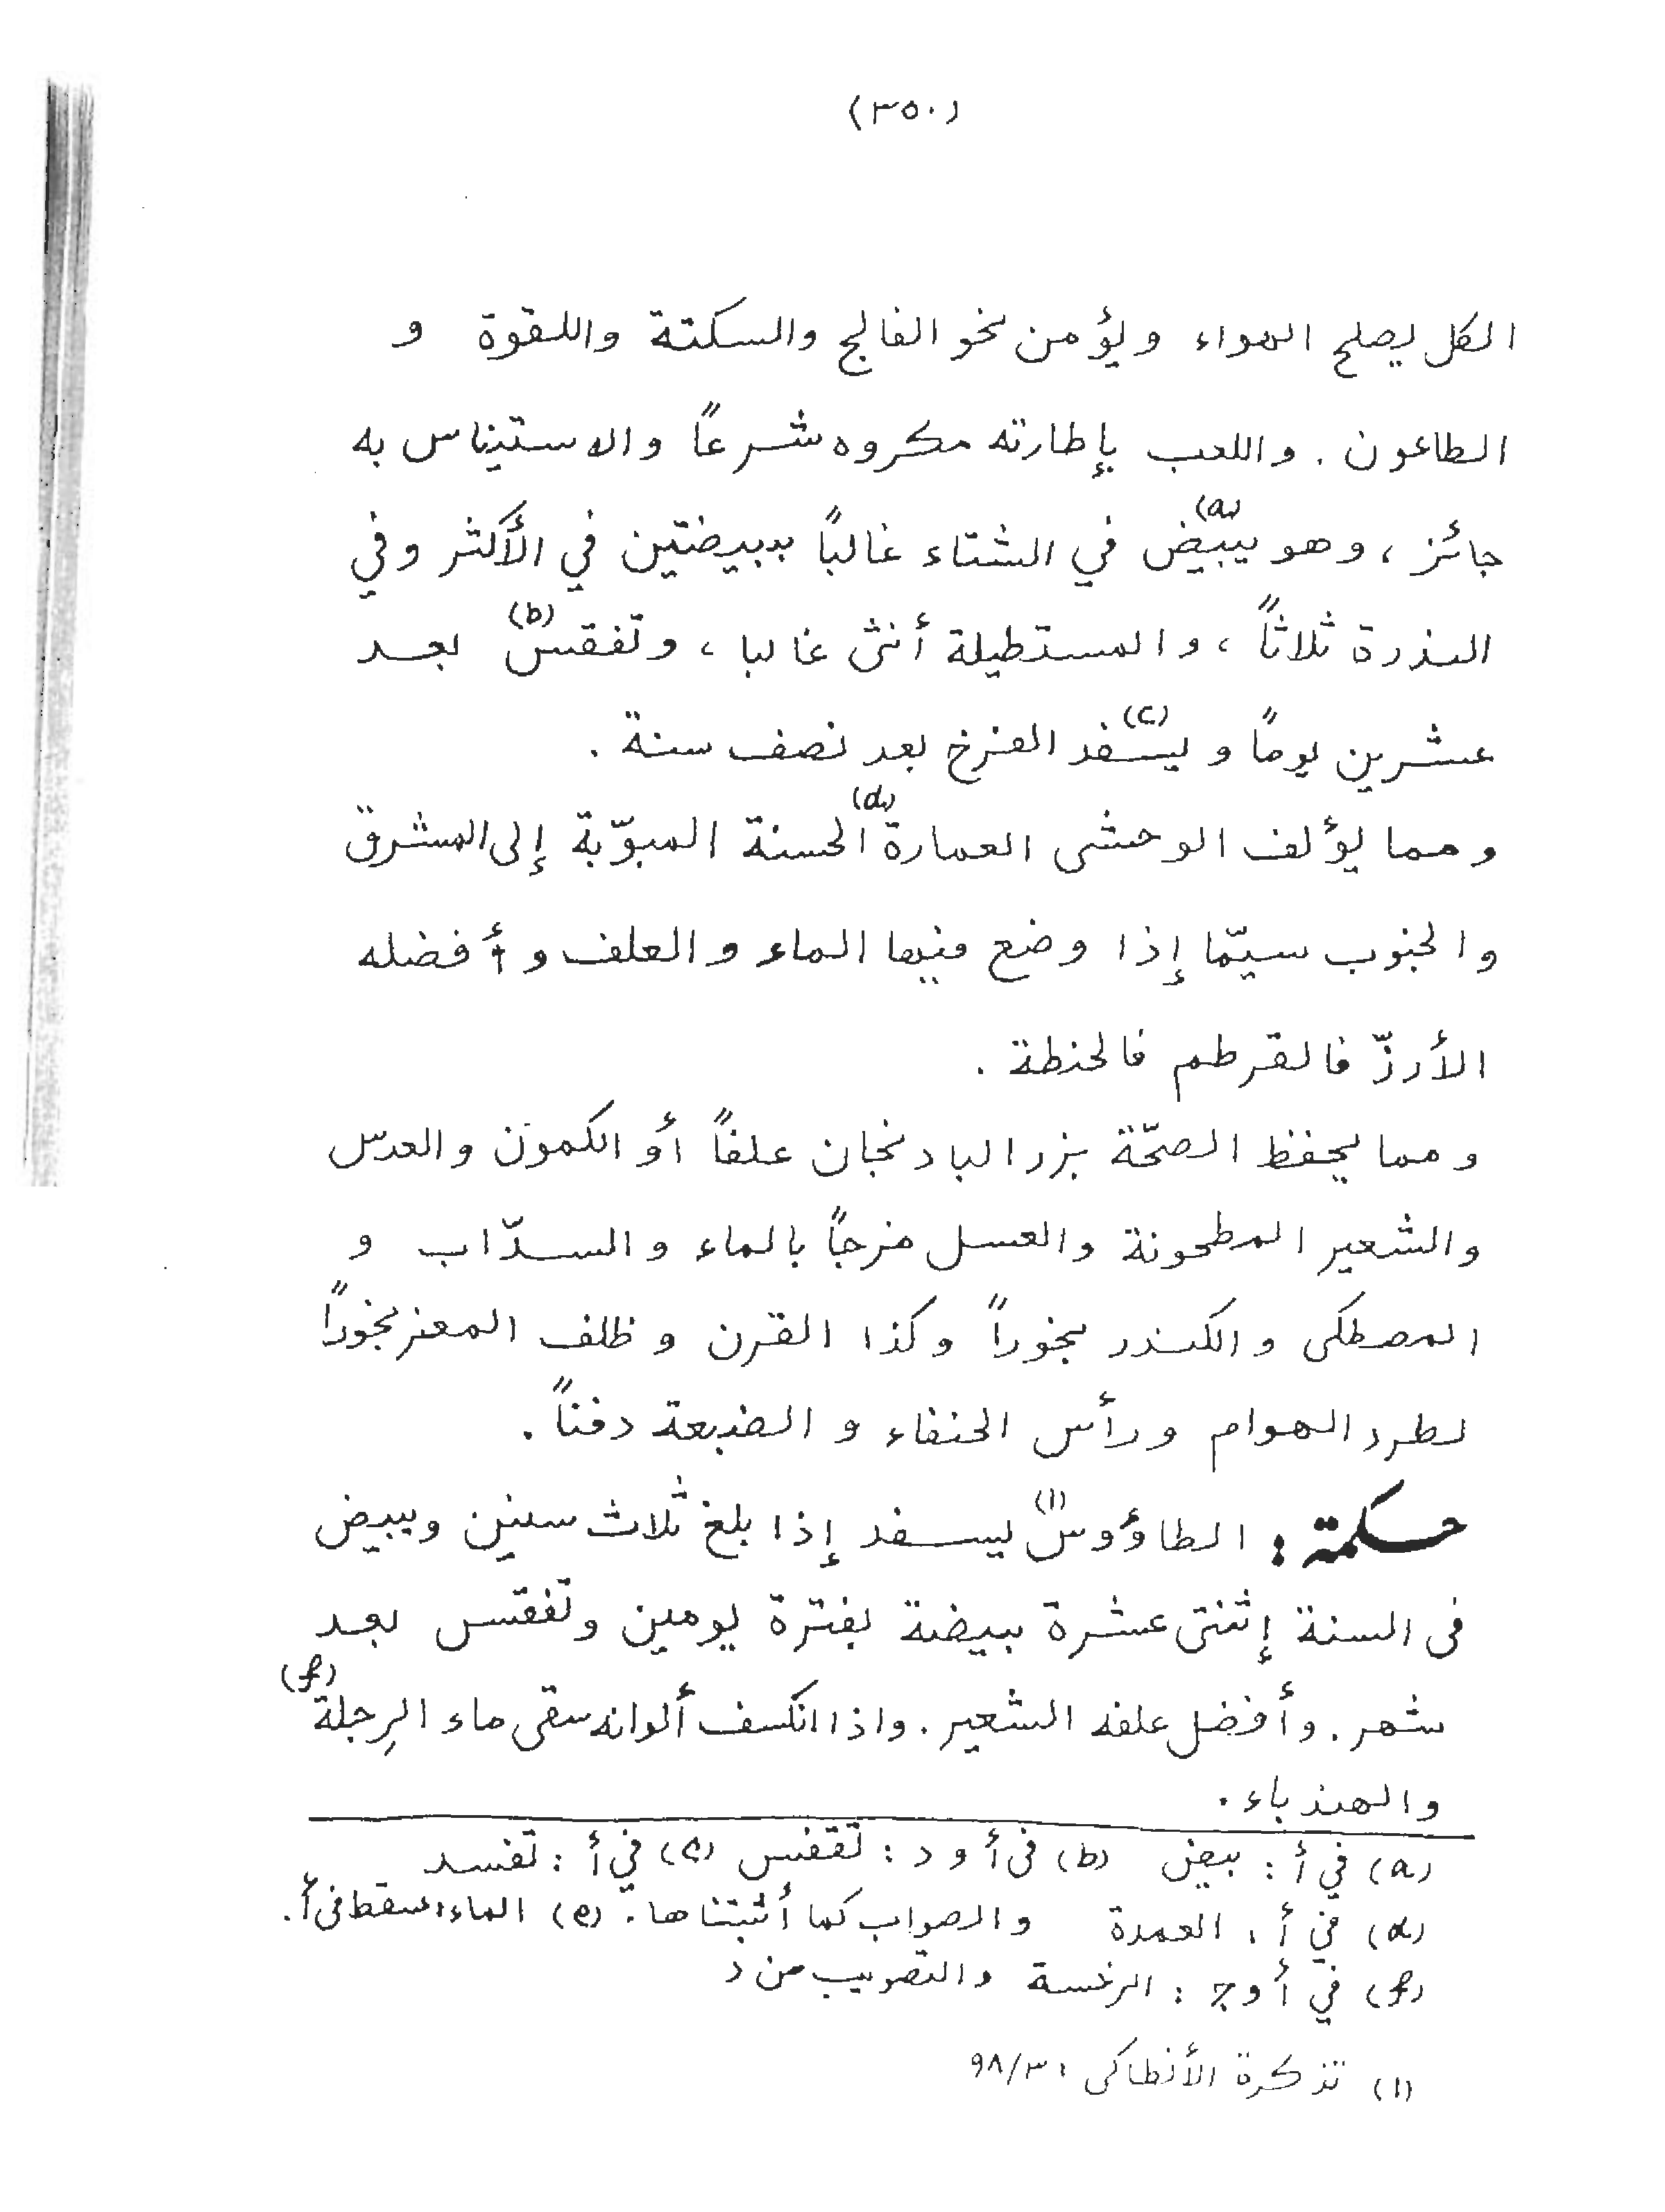 (٣٥٠)
الكل يصلح الهواء ويؤمن نحو الفالج والسكتة واللقوة و
الطاعون . واللعب بإطارته مكروه شرعاً والاستيناس به
جائز ، وهو يبيض(a) في الشتاء غالباً ببيضتين في الأكثر وفي
الندرة ثلاثاً ، والمستطيلة أنثى غالبا ، وتفقس(b) بعد
عشرين يوماً و يسفد(c) الفرخ بعد نصف سنة .
ومما يؤلف الوحشى العمارة(d) الحسنة المبوّبة إلى المشرق
والجنوب سيّما إذا وضع فيها الماء والعلف وأفضله
الأرزّ فالقرطم فالحنطة .
ومما يحفظ الصحّة بزر الباد نجان علفاً أو الكمون والعدس
والشعير المطحونة والعسل مزجاً بالماء والسدّاب و
المصطكى والكندر بخوراً وكذا القرن وظلف المعز بخوراً
لطرد الهوام ورأس الخنفاء و الضبعة دفناً .
حكمة : الطاؤوس(١) يسفد إذا بلغ ثلاث سنين ويبيض
فى السنة إثنتى عشرة بيضة بفترة يومين وتفقس بعد
شهر . وأفضل علفه الشعير . واذا انكسف ألوانه سقى ماء الرِجلة(f)
والهندباء .
(a) في أ : بيض (b) فى أ و د : تقفس (c) في أ : تفسد
(d) في أ : العمدة والصواب كما أثبتناها . (e) الماء : سقط فى أ .
(f) في أ وج : الرغسة والتصويب من د
(١) تذكرة الأنطاكى : ٩٨/٣